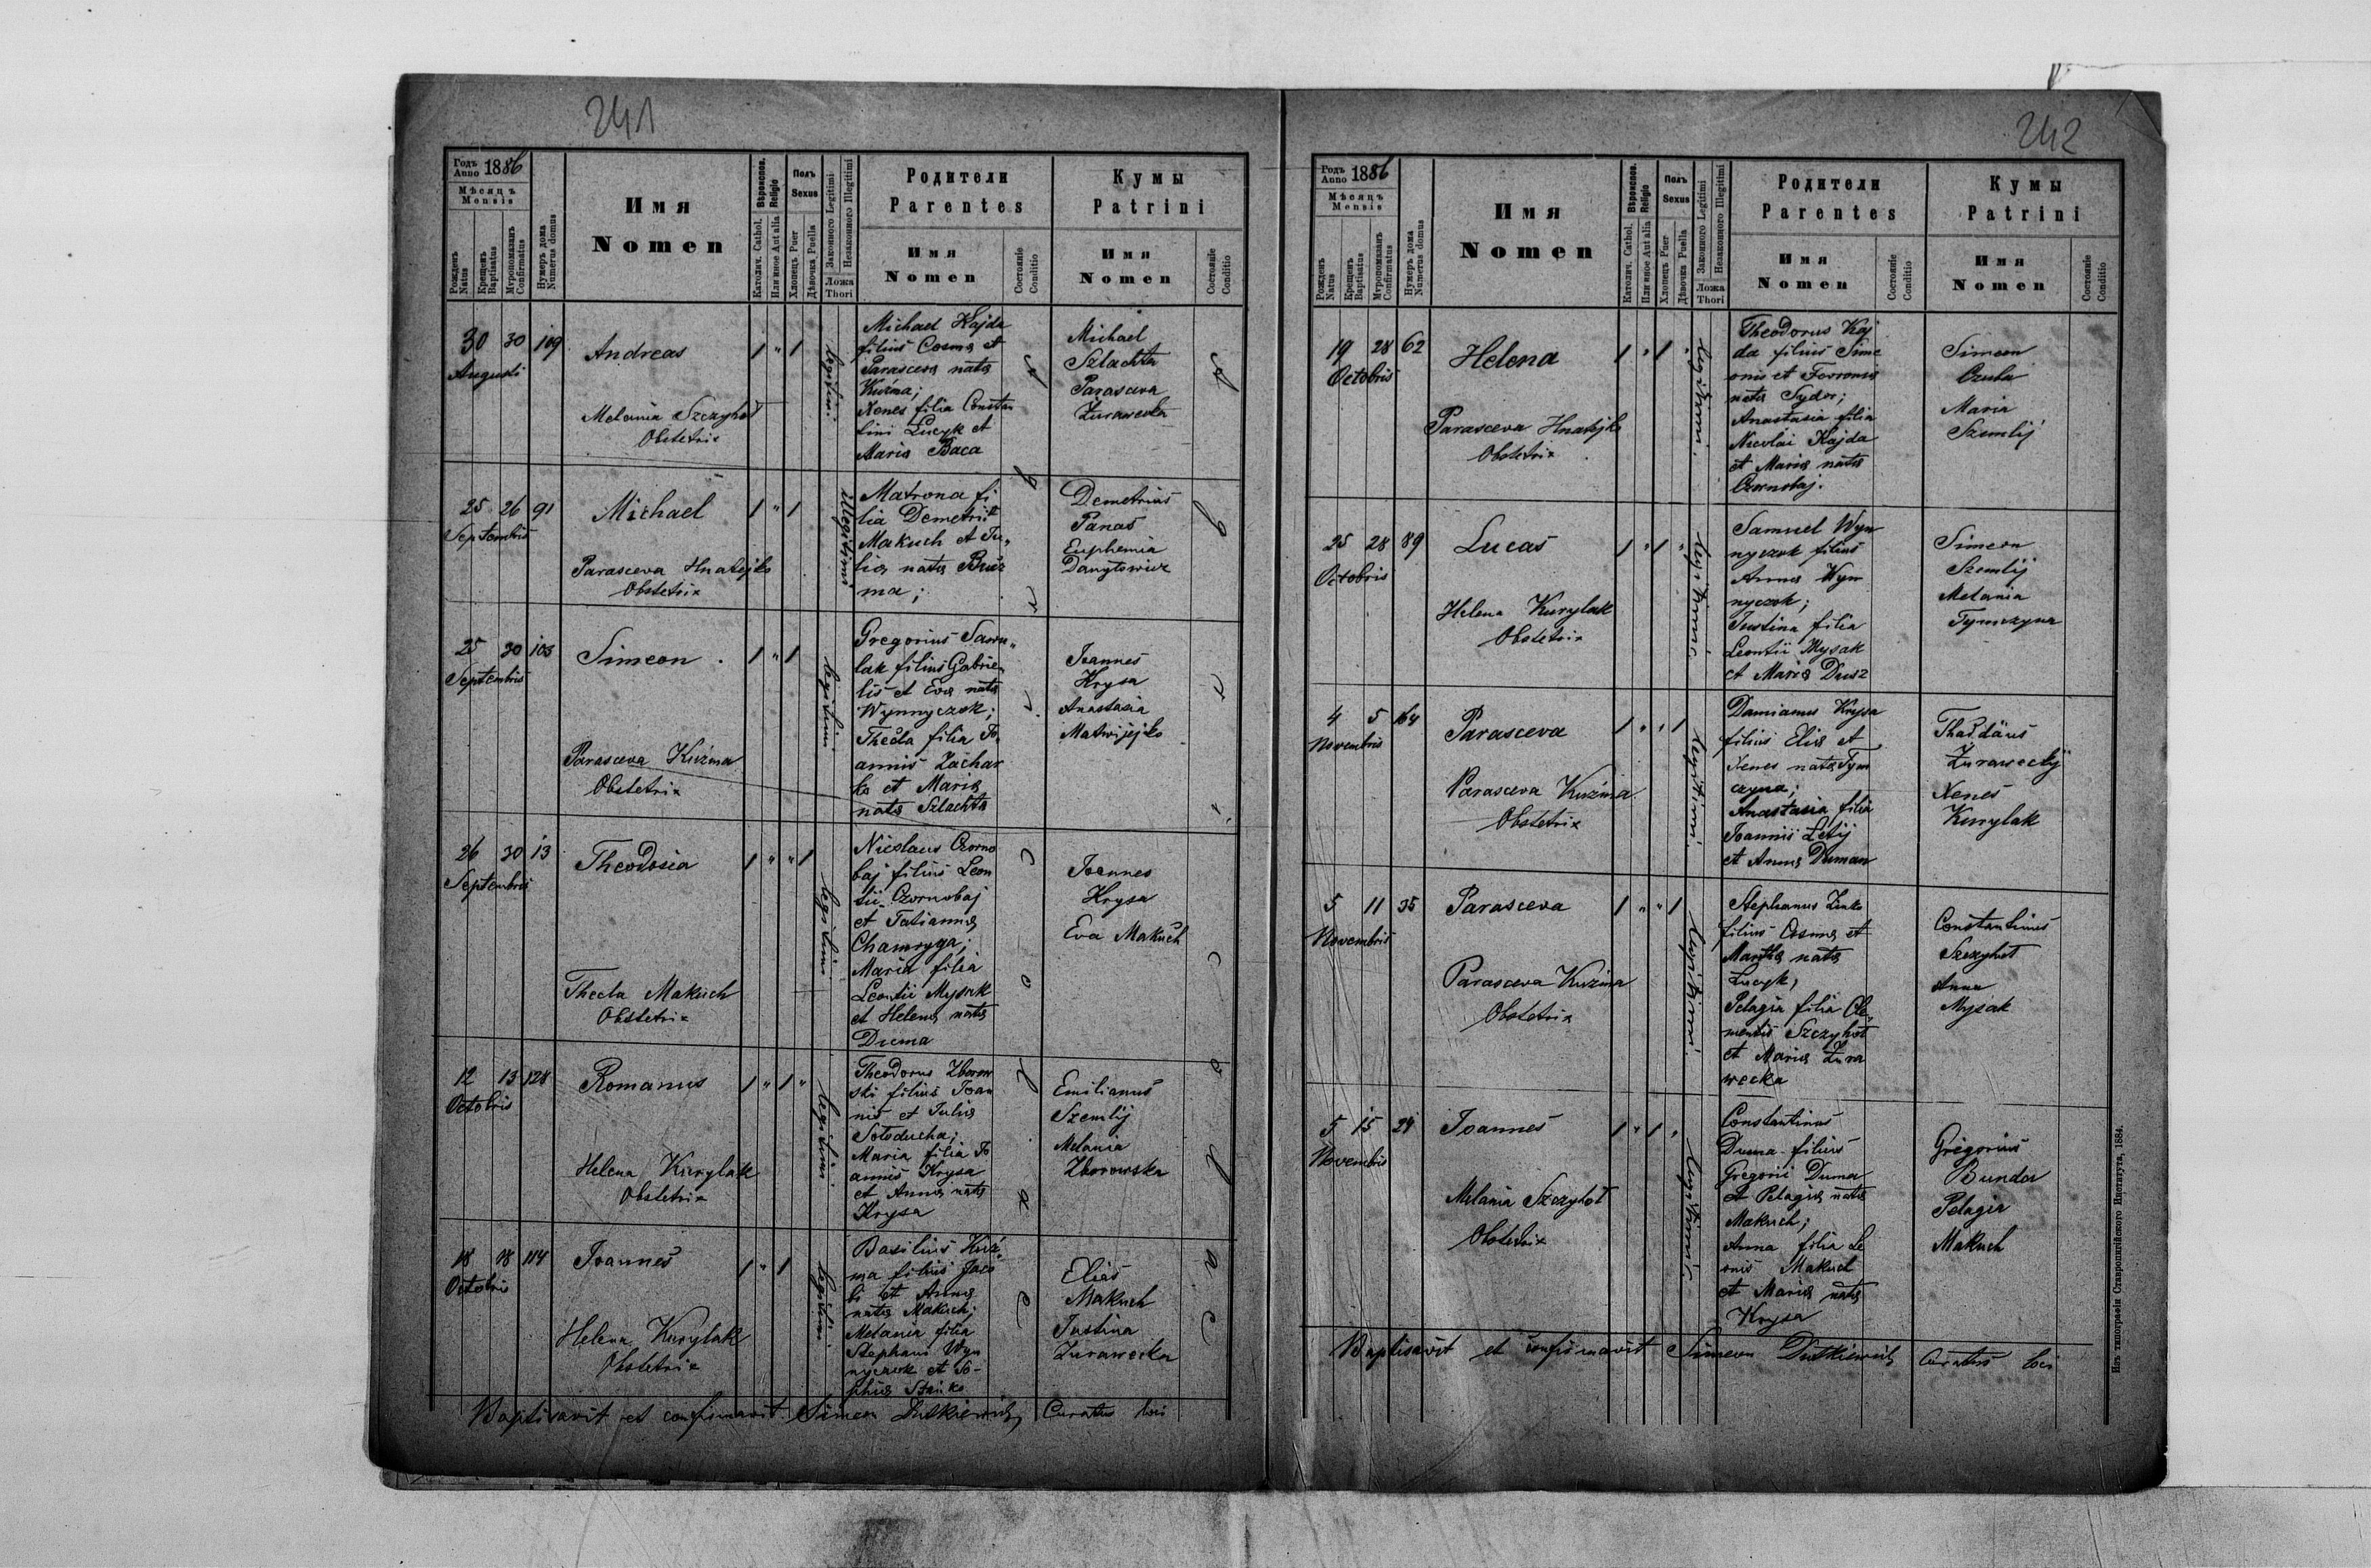 241
Годъ Anno 1886
Мѣсяцъ Mensis
Рожденъ Natus
Крещенъ Baptisatus
Мvропомазанъ Confirmatus
Нумеръ дома Numerus domus
Имя Nomen
Вѣроиспов. Religio
Католич. Cathol.
Или иное Aut alia
Полъ Sexus
Хлопецъ Puer
Дѣвочка Puella
Законного Legitimi
Незаконного Illegitimi
Ложа Thori
Родители Parentes
Имя Nomen
Состояніе Conditio
Кумы Patrini
Имя Nomen
Состояніе Conditio
30 30 109
Augusti
Andreas
1 " 1
legitimi
Melania Szczyhoł
Obstetrix
Michael Kajda
filius Cosmæ et
Parascevæ natæ
Kuźma;
Xenes filia Constan
tini Łucyk et
Mariæ Baca
Michael
Szlachta
Parasceva
Żurawecka
25 26 91
Septembris
Michael
1 " 1
illegitimi
Parasceva Hnatejko
Obstetrix
Matrona fi
lia Demetrii
Makuch et Ju"
liæ natæ Kuź
ma;
Demetrius
Panas
Euphemia
Danyłowicz
25 30 103
Septembris
Simeon
1 " 1
legitimi
Parasceva Kuźma
Obstetrix
Gregorius Sawu"
lak filius Gabrie"
lis et Evæ natæ
Wynnyczok;
Thecla filia Jo"
annis Zachar
ko et Mariæ
natæ Szlachta
Joannes
Krysa
Anastasia
Matwijejko
26 30 13
Septembris
Theodosia
1 " " 1
legitimi
Thecla Makuch
Obstetrix
Nicolaus Czorno
baj filius Leon
tii Czornobaj
et Tatiannæ
Chamryga;
Maria filia
Leontii Mysak
et Helenæ natæ
Duma
Joannes
Krysa
Eva Makuch
12 13 128
Octobris
Romanus
1 " 1 "
legitimi
Helena Kurylak
Obstetrix
Theodorus Zborow
ski filius Joan
nis et Juliæ
Sołoducha;
Maria filia Jo
annis Krysa
et Annæ natæ
Krysa
Emilianus
Szemlij
Melania
Zborowska
18 18 114
Octobris
Joannes
1 " 1
legitimi
Helena Kurylak
Obstetrix
Basilius Kuź"
ma filius Jaco
bi et Annæ
natæ Makuch;
Melania filia
Stephani Wyn
nyczok et So-
phiæ
Elias
Makuch
Justina
Żurawecka
A g r i c o l a e
A g r i c o l a e
Baptisavit et confirmavit Simeon Dutkiewicz, Curatus loci
242
Годъ Anno 1886
Мѣсяцъ Mensis
Рожденъ Natus
Крещенъ Baptisatus
Мvропомазанъ Confirmatus
Нумеръ дома Numerus domus
Имя Nomen
Вѣроиспов. Religio
Католич. Cathol.
Или иное Aut alia
Полъ Sexus
Хлопецъ Puer
Дѣвочка Puella
Законного Legitimi
Незаконного Illegitimi
Ложа Thori
Родители Parentes
Имя Nomen
Состояніе Conditio
Кумы Patrini
Имя Nomen
Состояніе Conditio
19 28 62
Octobris
Helena
1 " 1 "
legitimi.
Parasceva Hnatejko
Obstetrix
Theodorus Kaj
da filius Sime
onis et Fevroniæ
natæ Sydor;
Anastasia filia
Nicolai Kajda
et Mariæ natæ
Czornobaj.
Simeon
Czuba
Maria
Szemlij
25 28 89
Octobris
Lucas
1 " 1 "
legitimi
Helena Kurylak
Obstetrix
Samuel Wyn
nyczok filius
Annæ Wyn
nyczok;
Justina filia
Leontii Mysak
et Mariæ Dusz
Simeon
Szemlij
Melania
Tymczyna
4 5 164
Novembris
Parasceva
1 " " 1
legitimi.
Parasceva Kuźma
Obstetrix
Damianus Krysa
filius Eliæ et
Xenes natæ Tym
czyna;
Anastasia filia
Joannis Letij
et Annæ Duman
Thaddäus
Żuraweckij
Xenes
Kurylak
5 11 35
Novembris
Parasceva
1 " " 1
legitimi.
Parasceva Kuźma
Obstetrix
Stephanus Zinko
filius Cosmæ et
Marthæ natæ
Łucyk,
Pelagia filia Cle"
mentis Szczyhoł
et Mariæ Żura
wecka
Constantinus
Szczyhoł
Anna
Mysak
5 15 24
Novembris
Joannes
1 " 1 "
legitimi.
Melania Szczyhoł
Obstetrix
Constantinus
Duma filius
Gregorii Duma
et Pelagiæ natæ
Makuch;
Anna filia Le
onis Makuch
et Mariæ natæ
Krysa
Gregorius
Bunda
Pelagia
Makuch
Baptisavit et confirmavit Simeon Dutkiewicz Curatus loci
Изъ типографіи Ставропигійского Института, 1884.